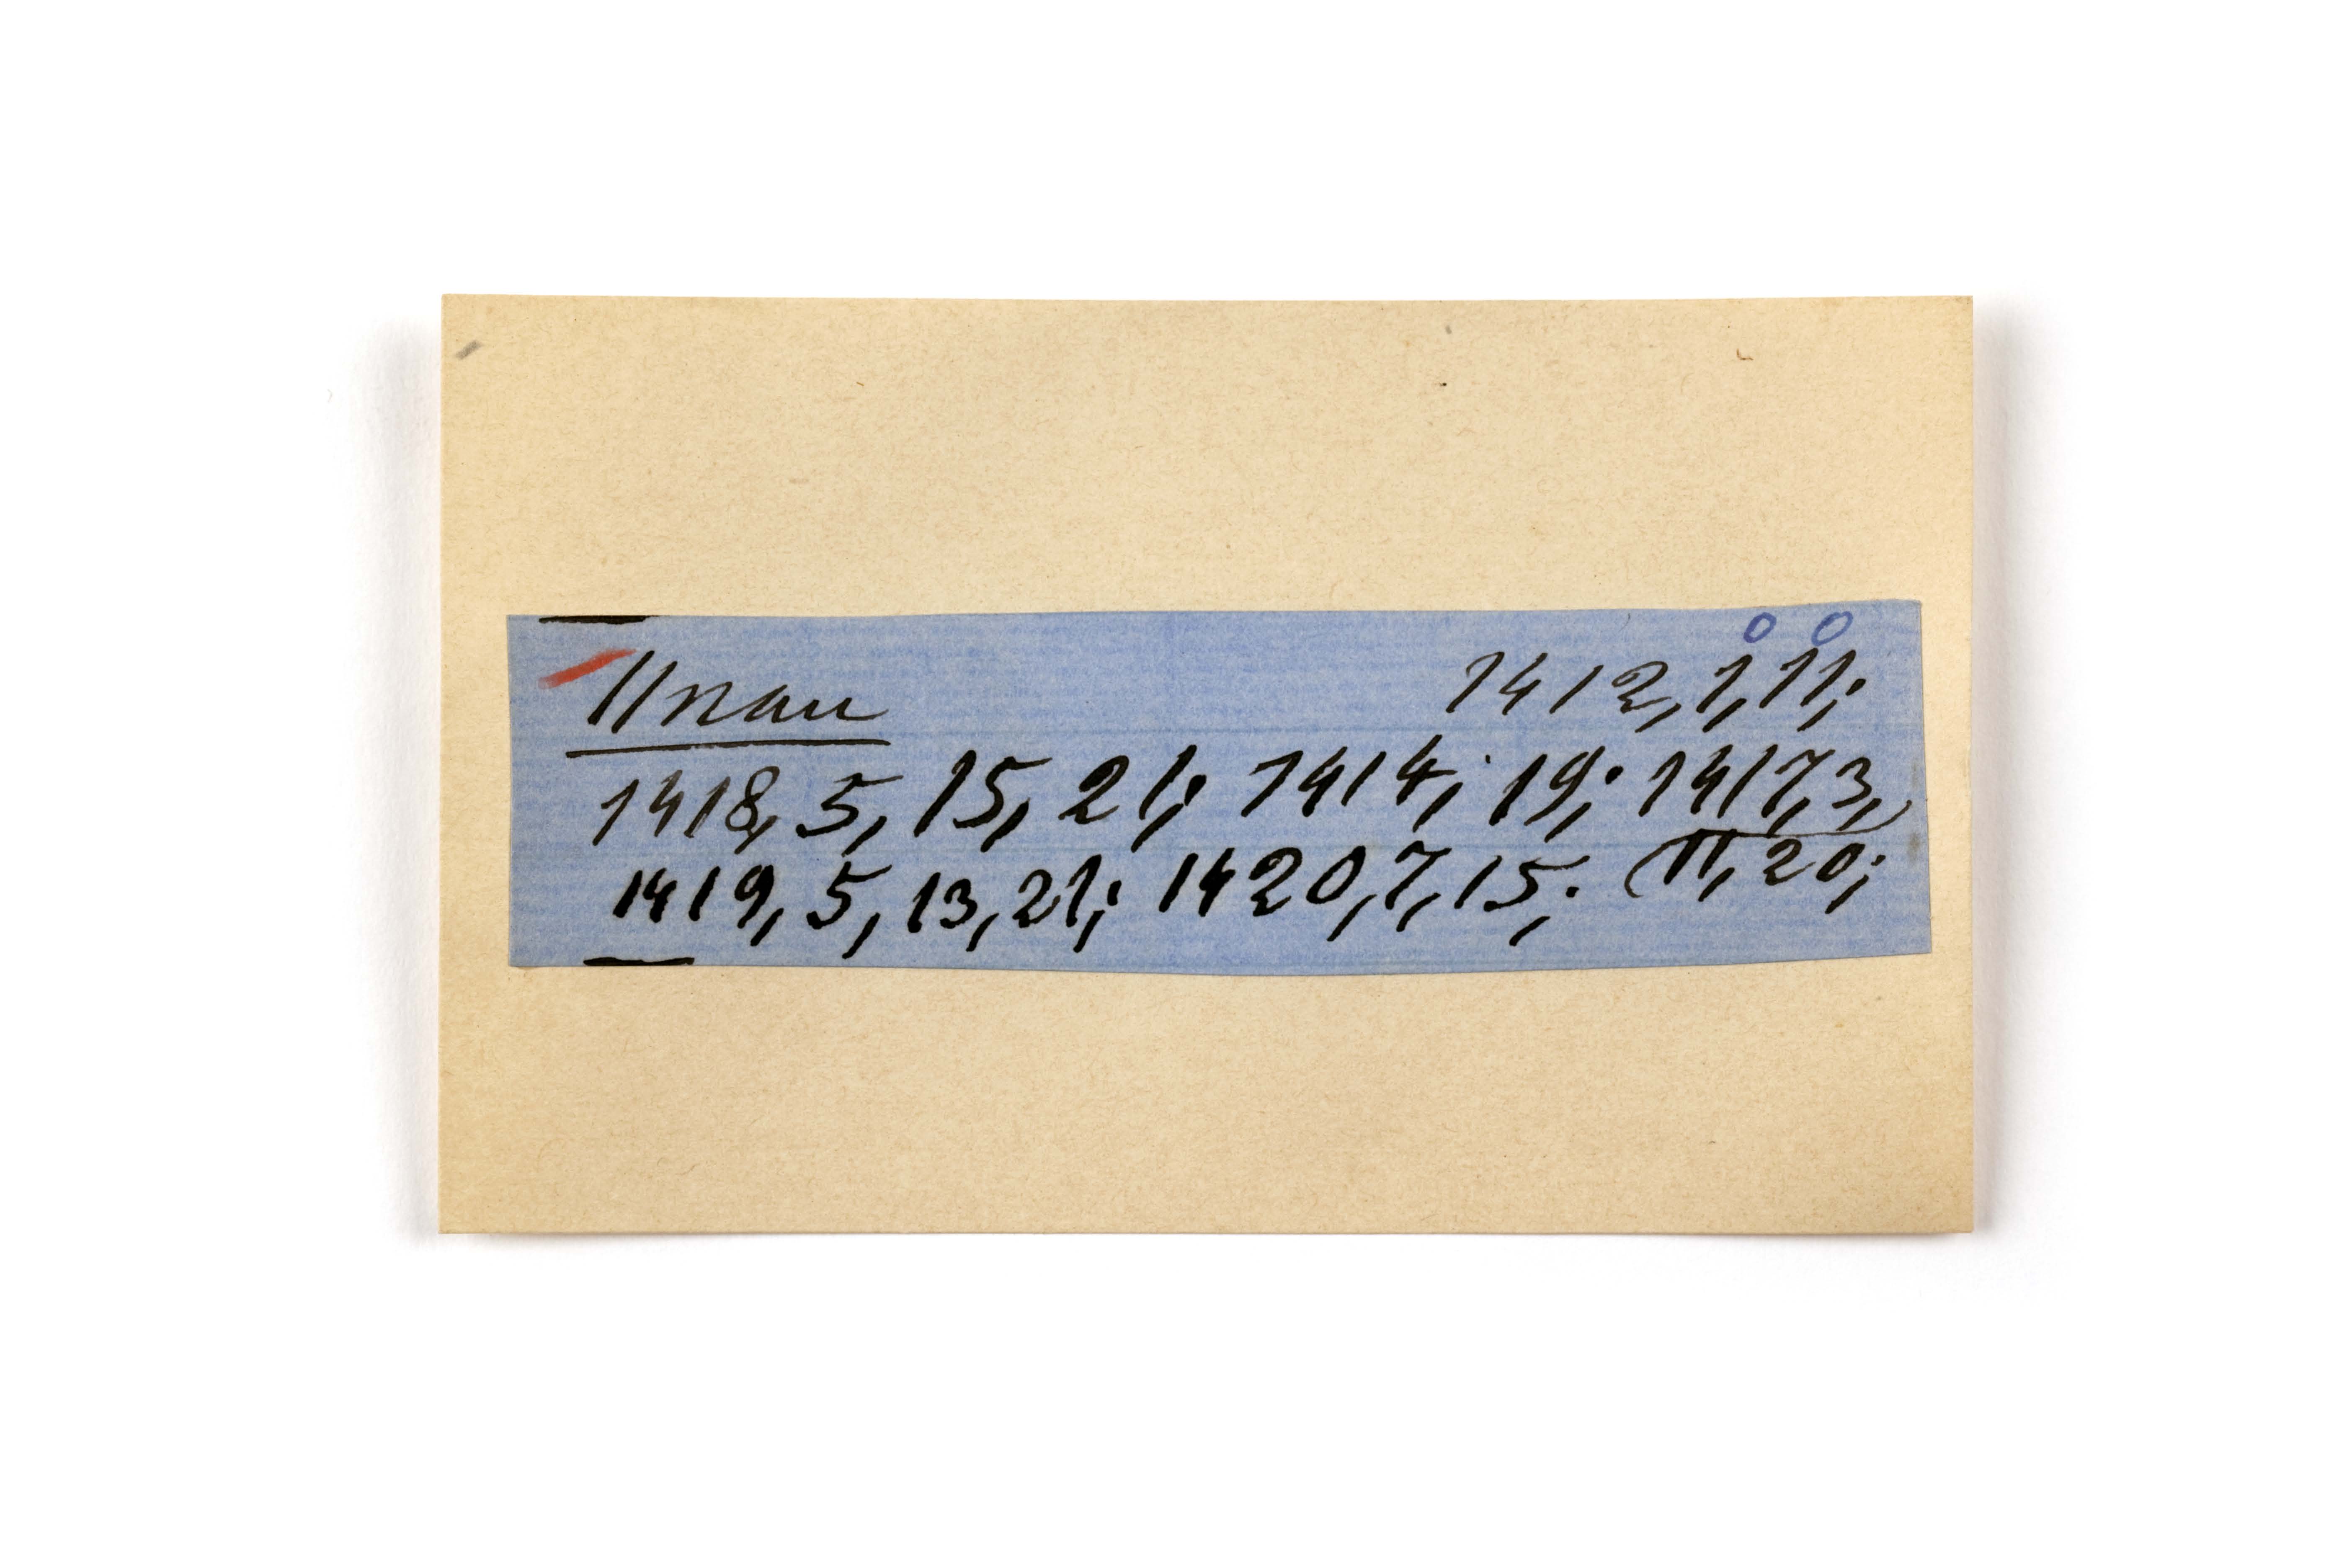 o o
Unau 1412, 1, 11;
1418, 5, 15, 21; 1414; 19; 1417, 3,
1419, 5, 13, 21; 1420, 7, 15; (11, 20;